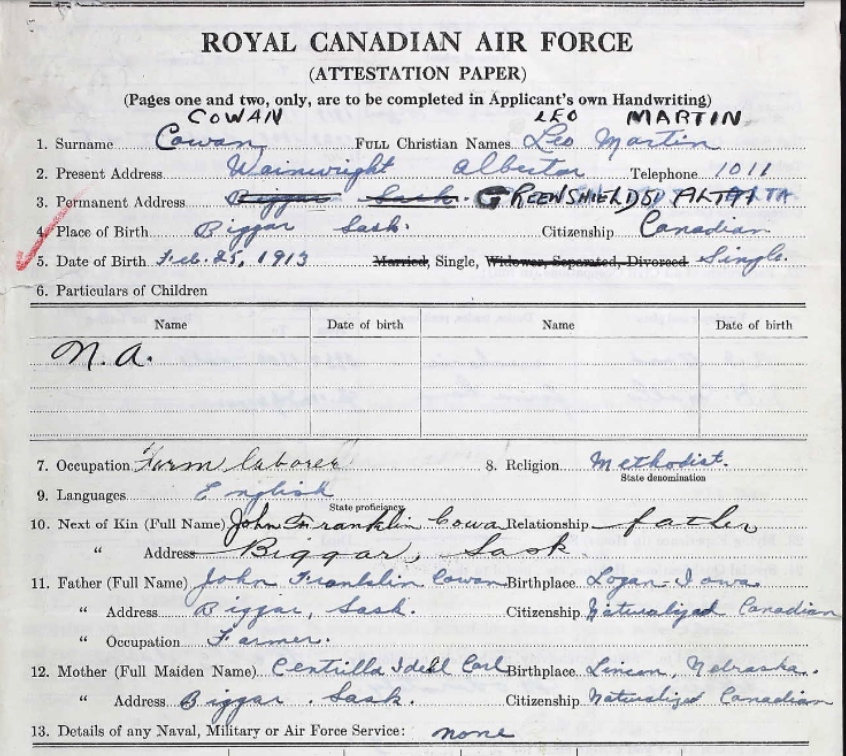 ROYAL CANADIAN AIR FORCE
(ATTESTATION PAPER)
(Pages one and two, only, are to be completed in Applicant's own Handwriting)
COWAN LEO MARTIN
1. Surname Cowan, FULL Christian Names Leo Martin
2. Present Address Wainwright Alberta Telephone 1011
3. Permanent Address Biggar Sask. GREENSHIELDS ALTA
4. Place of Birth Biggar Sask. Citizenship Canadian
5. Date of Birth Feb. 25, 1913 Married, Single, Widower, Separated, Divorced Single.
6. Particulars of Children
Name Date of birth Name Date of birth
N.A.
7. Occupation Farm laborer 8. Religion Methodist.
State denomination
9. Languages English
State proficiency
10. Next of Kin (Full Name) John Franklin Cowa Relationship father
" Address Biggar, Sask.
11. Father (Full Name) John Franklin Cowan Birthplace Logan-Iowa.
" Address Biggar, Sask. Citizenship Naturalized Canadian
" Occupation Farmer.
12. Mother (Full Maiden Name) Idell Birthplace Nebraska.
" Address Biggar, Sask. Citizenship Naturalized Canadian
13. Details of any Naval, Military or Air Force Service: none